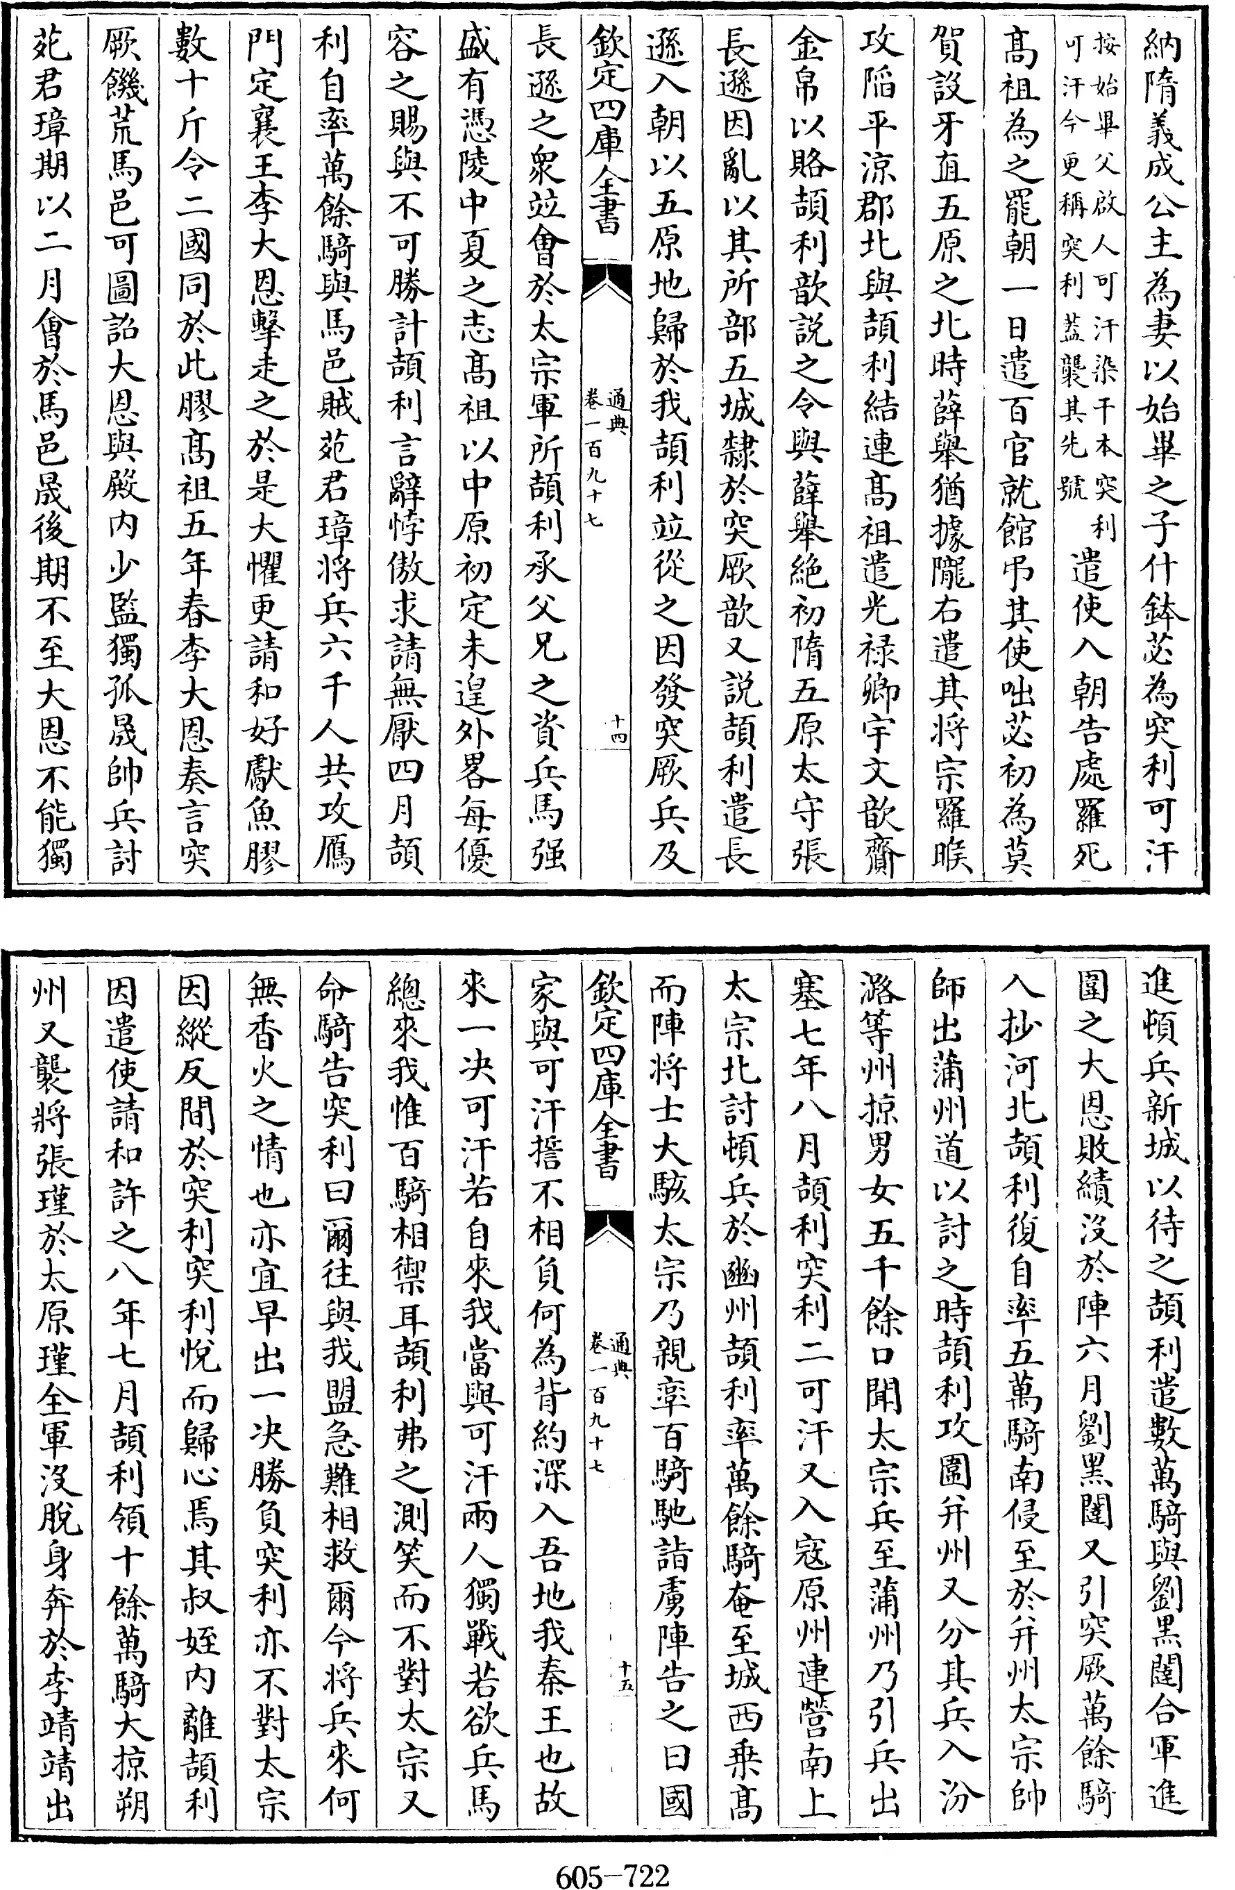 納隋義成公主為妻以始畢之子什鉢苾為突利可汗
按始畢父啟人可汗染干本突利
可汗今更稱突利葢襲其先號
遣使入朝告處羅死
髙祖為之罷朝一日遣百官就館弔其使咄苾初為莫
賀設牙直五原之北時薛舉猶據隴右遣其将宗羅睺
攻䧟平涼郡北與頡利結連髙祖遣光禄卿宇文歆齎
金帛以賂頡利歆説之令與薛舉絶初隋五原太守張
長遜因亂以其所部五城隸於突厥歆又説頡利遣長
遜入朝以五原地歸於我頡利竝從之因發突厥兵及
欽定四庫全書
通典
卷一百九十七
十四
長遜之衆竝會於太宗軍所頡利承父兄之資兵馬强
盛有憑陵中夏之志髙祖以中原初定未遑外畧每優
容之賜與不可勝計頡利言辭悖傲求請無厭四月頡
利自率萬餘騎與馬邑賊苑君璋将兵六千人共攻鴈
門定襄王李大恩擊走之於是大懼更請和好獻魚膠
數十斤令二國同於此膠髙祖五年春李大恩奏言突
厥饑荒馬邑可圖詔大恩與殿内少監獨孤晟帥兵討
苑君璋期以二月會於馬邑晟後期不至大恩不能獨
進頓兵新城以待之頡利遣數萬騎與劉黒闥合軍進
圍之大恩敗績沒於陣六月劉黒闥又引突厥萬餘騎
入抄河北頡利復自率五萬騎南侵至於并州太宗帥
師出蒲州道以討之時頡利攻圍并州又分其兵入汾
潞等州掠男女五千餘口聞太宗兵至蒲州乃引兵出
塞七年八月頡利突利二可汗又入寇原州連營南上
太宗北討頓兵於豳州頡利率萬餘騎奄至城西乗髙
而陣将士大駭太宗乃親率百騎馳詣虜陣告之曰國
欽定四庫全書
通典
卷一百九十七
十五
家與可汗誓不相負何為背約深入吾地我秦王也故
來一决可汗若自來我當與可汗兩人獨戰若欲兵馬
總來我惟百騎相禦耳頡利弗之測笑而不對太宗又
命騎告突利曰爾往與我盟急難相救爾今将兵來何
無香火之情也亦宜早出一决勝負突利亦不對太宗
因縱反間於突利突利悅而歸心焉其叔姪内離頡利
因遣使請和許之八年七月頡利領十餘萬騎大掠朔
州又襲将張瑾於太原瑾全軍沒脫身奔於李靖靖出
605-722